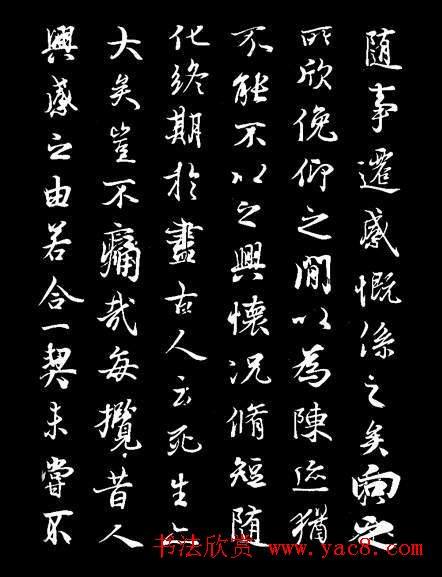 随事遷感慨係之矣向之
所欣俛仰之閒以為陳迹猶
不能不以之興懷況脩短随
化終期於盡古人云死生亦
大矣豈不痛哉每攬昔人
興感之由若合一契未嘗不
书法欣赏 www.yac8.com